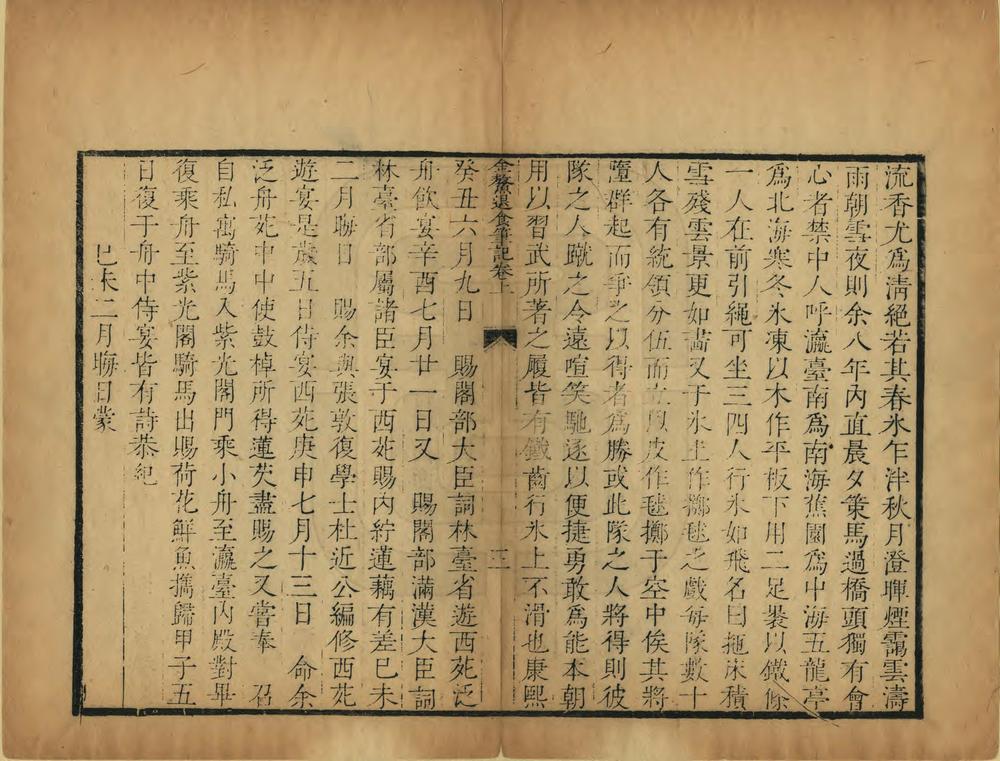 流香尤爲清絕若其春氷乍泮秋月澄暉煙靄雲濤
雨朝雪夜則余八年內直晨夕策馬過橋頭獨有會
心者禁中人呼瀛臺南爲南海蕉園爲中海五龍亭
爲北海寒冬氷凍以木作平板下用二足裝以鐵條
一人在前引繩可坐三四人行氷如飛名曰拖床積
雪殘雲景更如畵又于氷上作擲毬之戲每隊數十
人各有統領分伍而立以皮作毬擲于空中俟其將
墮群起而爭之以得者爲勝或此隊之人將得則彼
隊之人蹴之令遠喧笑馳逐以便捷勇敢爲能本朝
用以習武所著之履皆有鐵齒行氷上不滑也康熙
金鰲退食筆記卷上 三
癸丑六月九日 賜閣部大臣詞林臺省遊西苑泛
舟飲宴辛酉七月廿一日又 賜閣部滿漢大臣詞
林臺省部屬諸臣宴于西苑賜內紵蓮藕有差巳未
二月晦日 賜余與張敦復學士杜近公編修西苑
遊宴是歲五日侍宴西苑庚申七月十三日 命余
泛舟苑中中使鼓棹所得蓮芡盡賜之又嘗奉 召
自私寓騎馬入紫光閣門乘小舟至瀛臺內殿對畢
復乘舟至紫光閣騎馬出賜荷花鮮魚擕歸甲子五
日復于舟中侍宴皆有詩恭紀
巳未二月晦日蒙